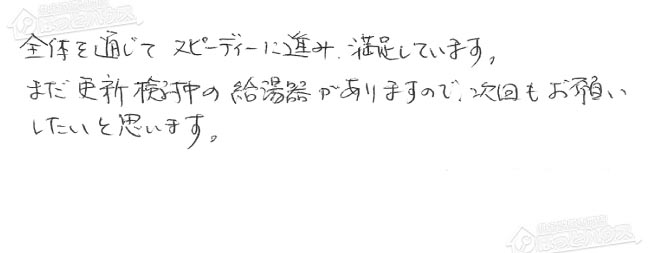 全体を通じてスピーディーに進み、満足しています。
まだ更新検討中の給湯器がありますので、次回もお願い
したいと思います。